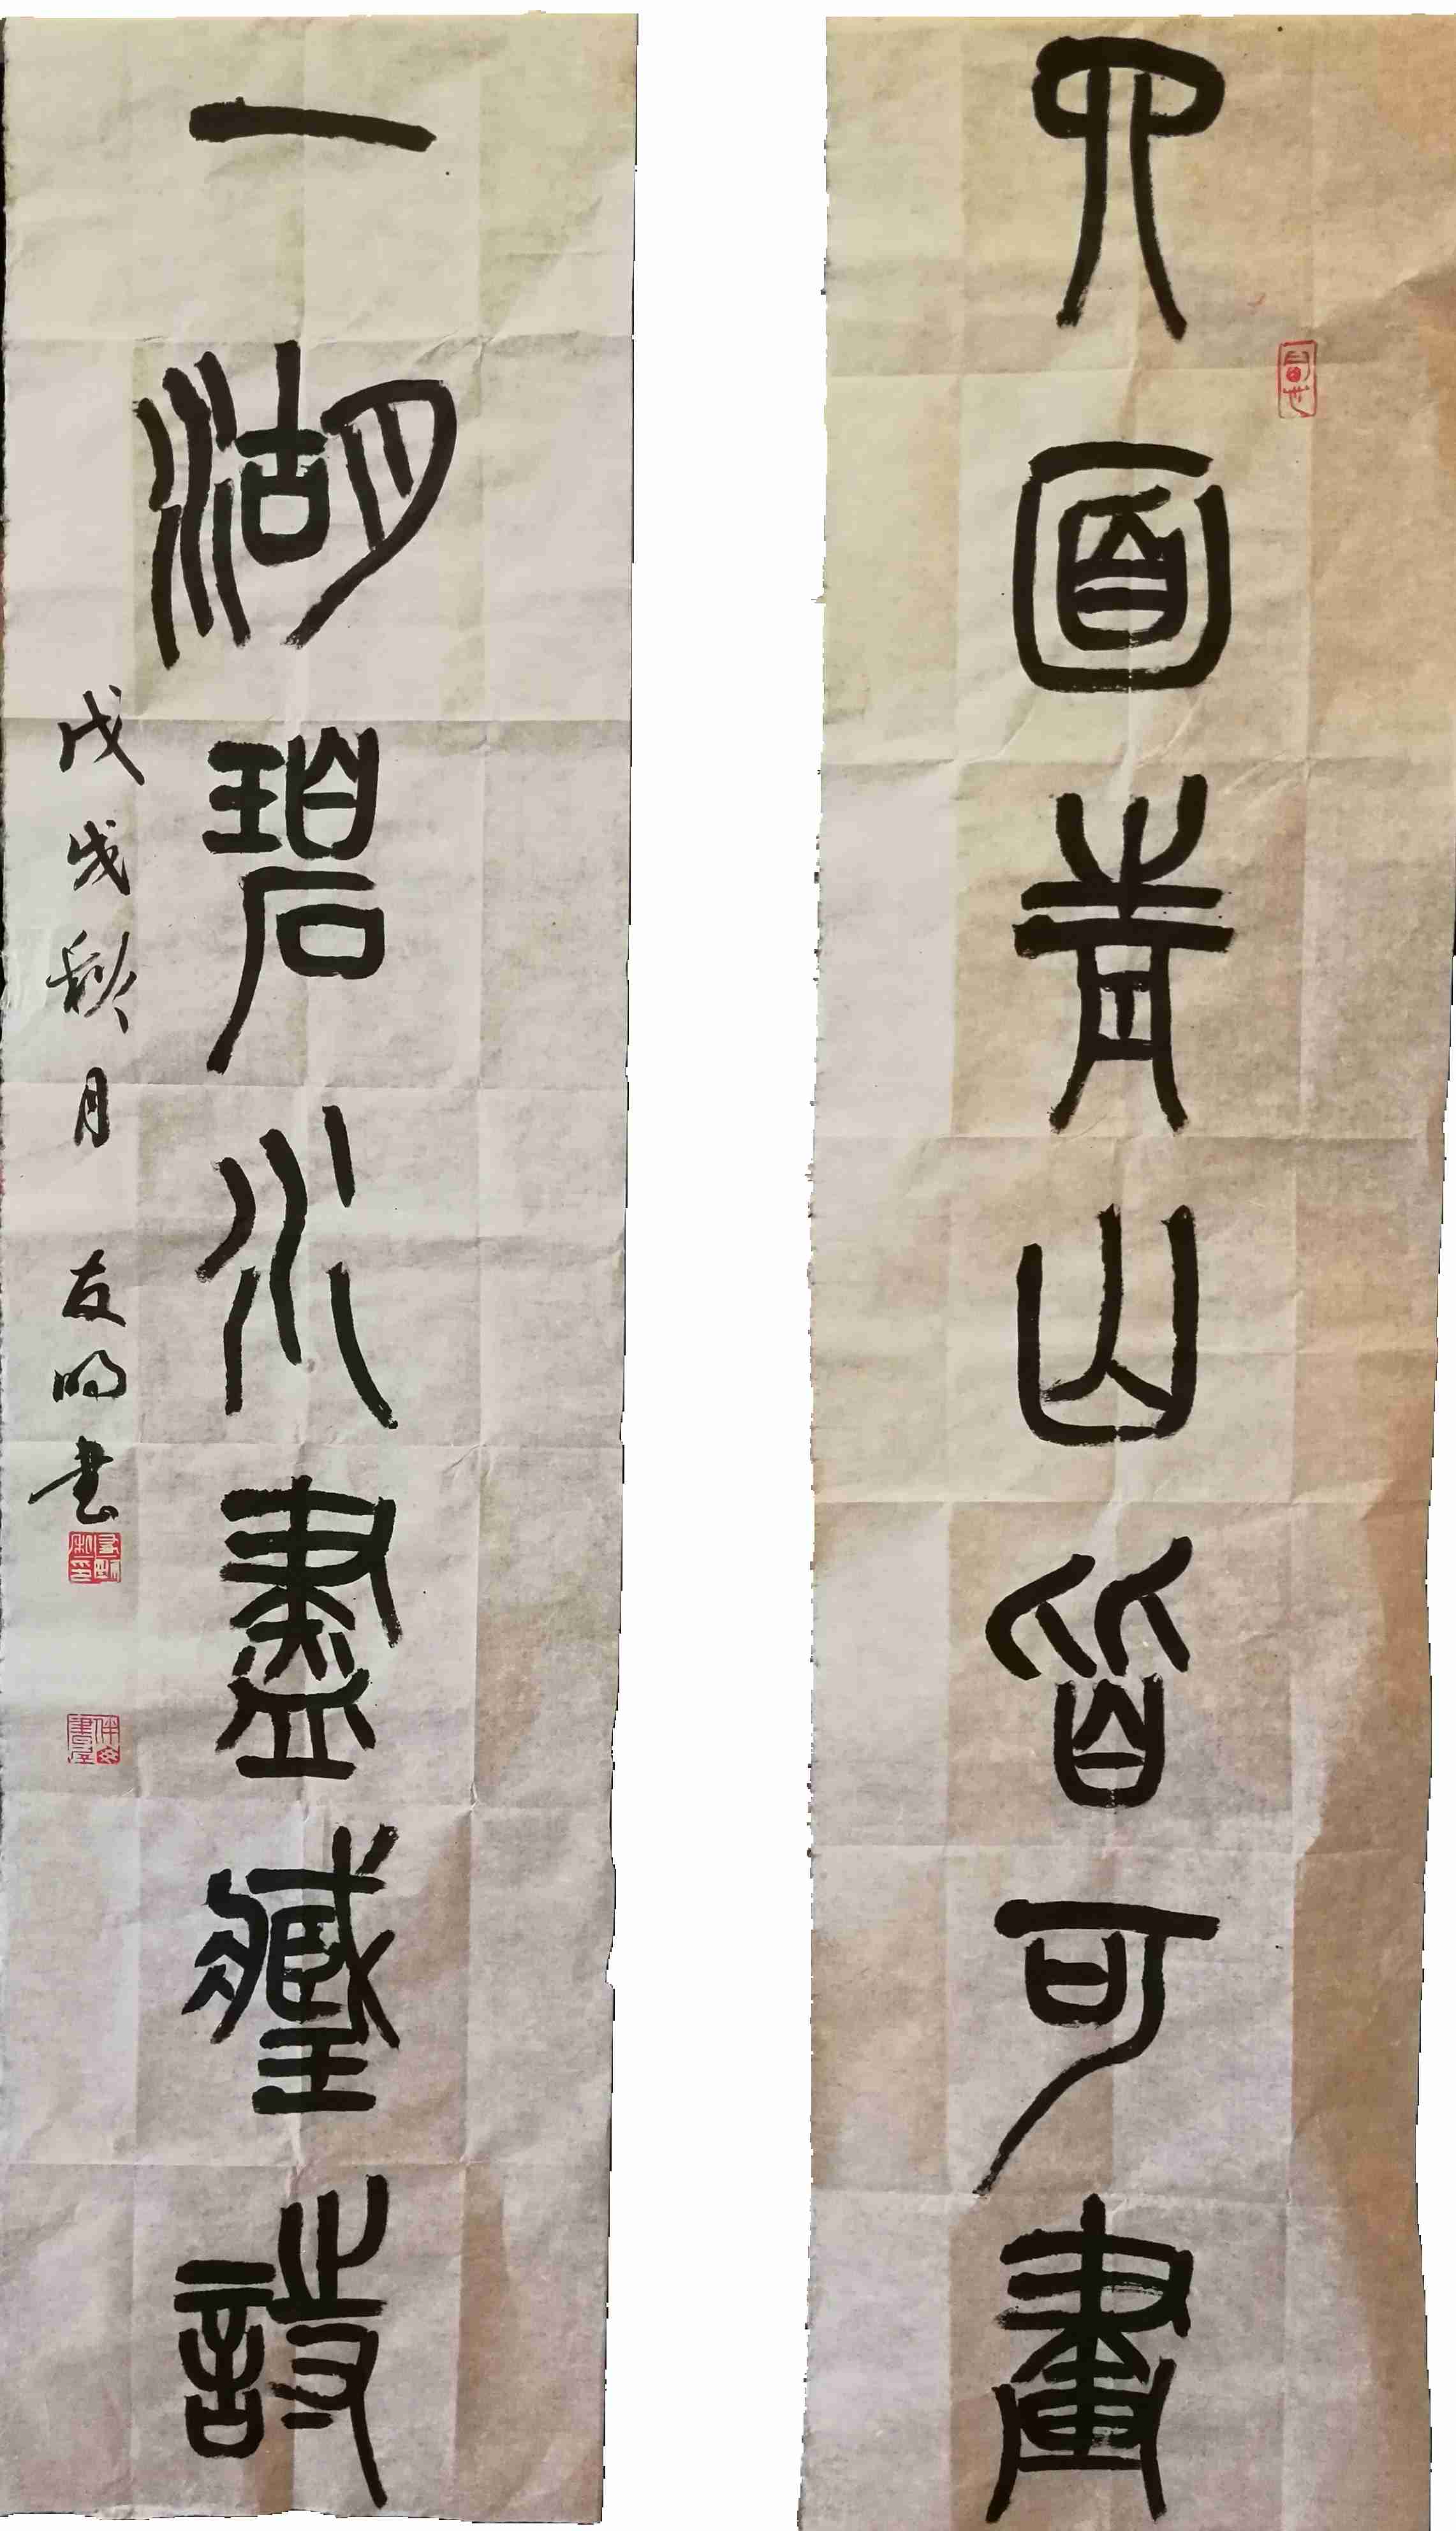 四面青山皆可畫
一湖碧水盡藏詩
戊戌秋月 友明書